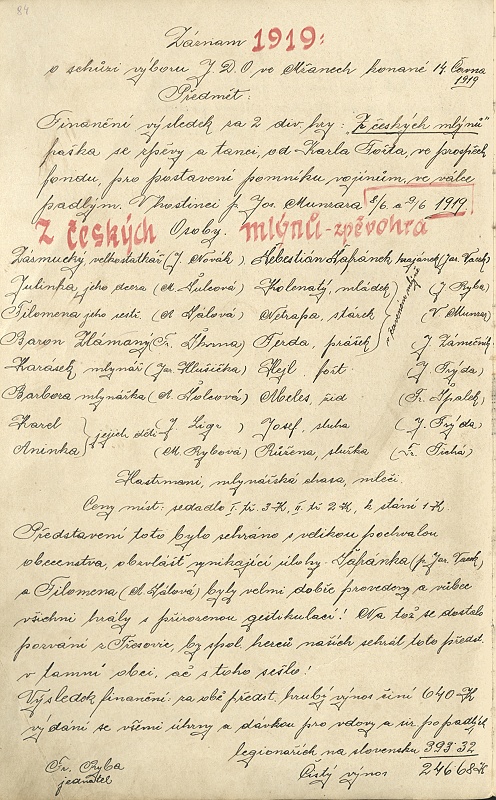 84
Záznam 1919:
o schůzi výboru J. D. O ve Mžanech konané 14. Června
1919
Předmět:
Finanční výsledek za 2 div. hry: „Z českých mlýnů"
fraška se zpěvy a tanci, od Karla Fořta, ve prospěch
fondu, pro postavení pomníku vojínům, ve válce
padlým. V hostinci p. Jos. Munzara 8/6. a 9/6 1919
Z českých Osoby. mlýnů-zpěvohra
Zásmucký, velkostatkář (J Novák) Šebestian Šafránek krajánek (Jar. Vacek)
Julinka, jeho dcera (M. Šulcová) Kolenatý, mládek (J Ryba)
Filomena, jeho sestř. (A. Hálová) Netrapa, stárek (V Munzar)
Baron Zlámaný (Fr. Thuma) Ferda, prášek (J Zámečník)
Karásek mlynář (Jar Hlušička) Hejl, fořt (J. Frýda)
Barbora mlynářka (A. Šolcová) Abeles, žid (Fr. Špalek)
Karel jejich děti (J. Ligr) Josef, sluha (J. Frýda)
Aninka (M. Rybová) Růžena, služka (Fr. Tichá)
Hastrmani, mlynářská chasa, mlečí.
Ceny míst: sedadlo I. tř. 3-K, II. tř. 2-K, k stání 1-K.
Představení toto bylo sehráno s velikou pochvalou
obecenstva, obzvlášť vynikající úlohy. Šafránka (p. Jar. Vacek)
a Filomena (A. Hálová) byly velmi dobře provedeny a vůbec
všichni hrály s přirozenou gestikulací! Na tož se dostalo
pozvání z Třesovic, by spol. herců našich sehrál toto předst.
v tamní obci, ač s toho sešlo!
Výsledek finanční: za obě předst. hrubý výnos činí 640-K
vydání se všemi úhrny a dávkou pro vdovy a sir. po padlých
legionářích na slovensku 393·32
Čistý výnos 246·68-K
Fr. Ryba
jednatel